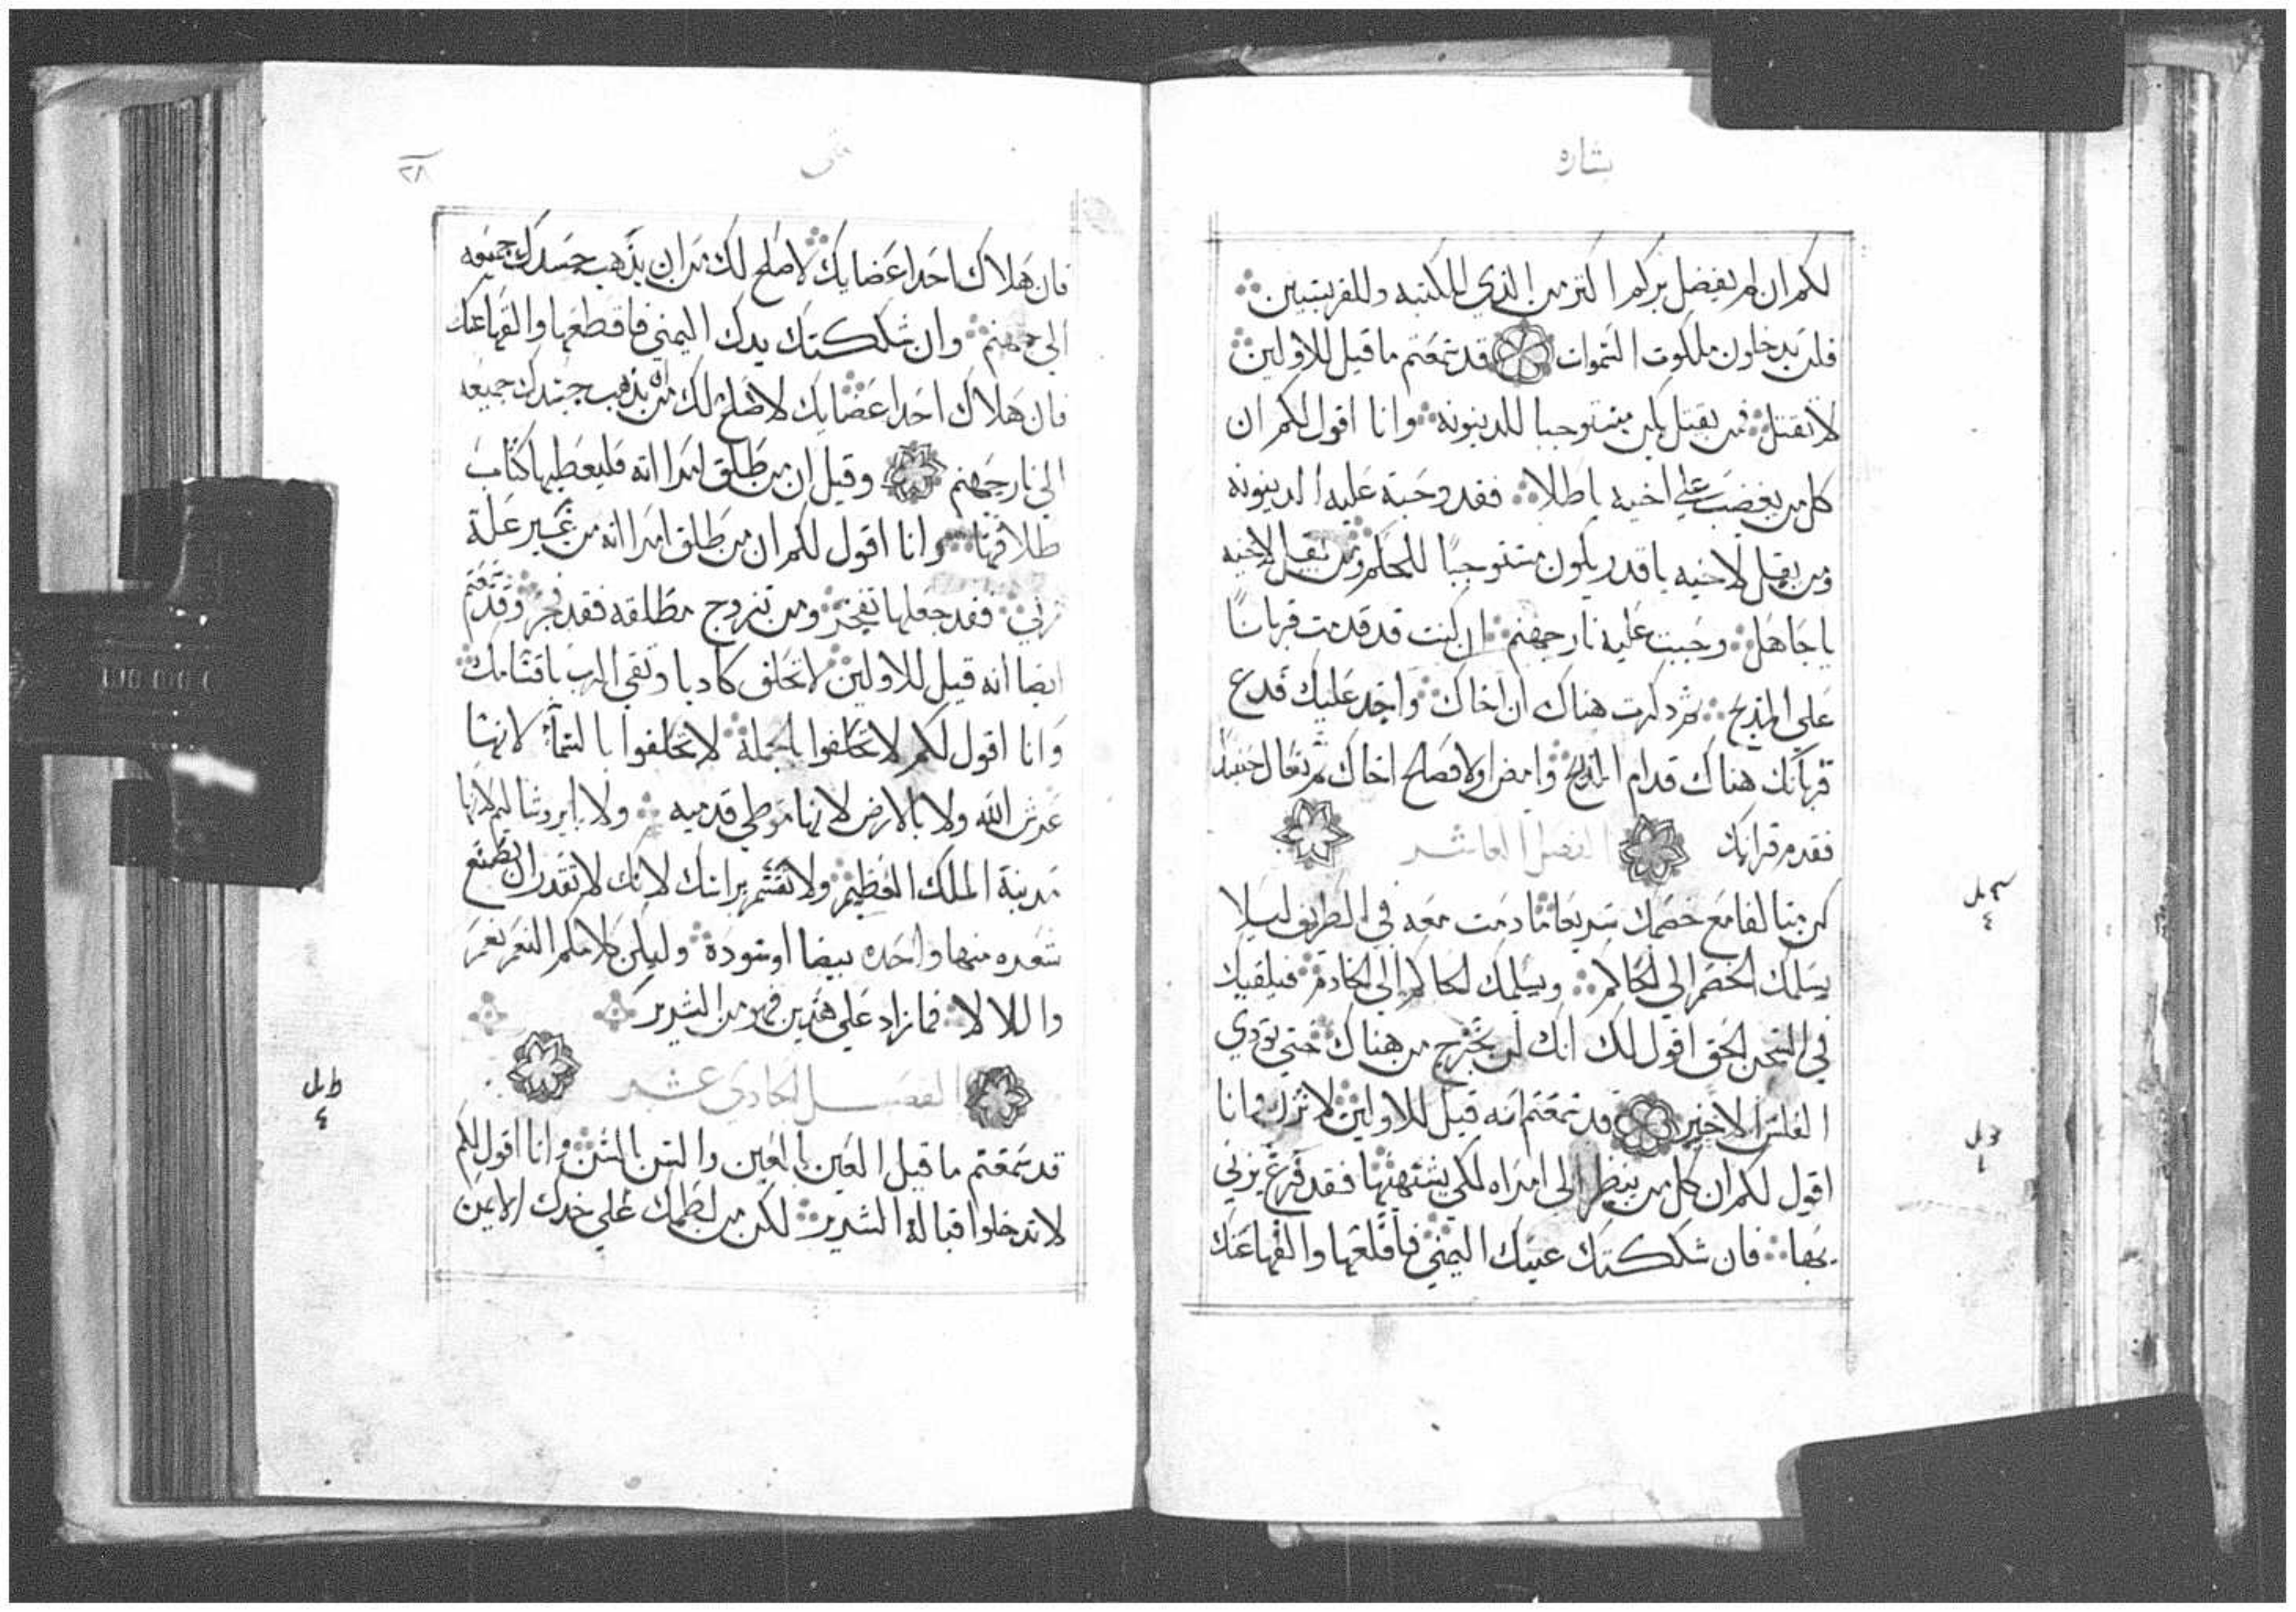 بشاره
لكم ان لم يفضل بركم اكثر من الذي للكتبه وللفريسيين
فلن تدخلون ملكوت السموات قد سمعتم ما قيل للاولين
لا تقتل فمن يقتل يكن مستوجبا للدينونه وانا اقول لكم ان
كل من يغضب علي اخيه باطلا فقد وجبة عليه الدينونه
ومن يقل لاخيه يا قدر يكون مستوجبا للمحكم ومن يقل لاخيه
يا جاهل وجبت عليه نار جهنم ان كنت قد قدمت قربانا
علي المذبح ثم دكرت هناك ان اخاك واجد عليك فدع
قربانك هناك قدام المذبح وامض اولا فصالح اخاك ثم تعال حينيد
فقدم قرانك الفصل العاشر
كن متالفا مع خصمك سريعا ما دمت معه في الطريق ليلا
يسلمك الخصم الي الحاكم ويسلمك الحاكم الي الخادم فيلقيك
في السجن الحق اقول لك انك لن تخرج من هناك حتي تودي
الفلس الاخير قد سمعتم انه قيل للاولين لا تزن وانا
اقول لكم ان كل من ينظر الي امراه لكي يشتهيها فقد فرغ يزني
بها فان شككتك عينك اليمني فاقلعها والقها عنك
٢٨
فان هلاك احد اعضايك لاصلح لك من ان يذهب جسدك جميعه
الي جهنم وان شككتك يدك اليمني فاقطعها والقها عنك
فان هلاك احد اعضايك لاصلح لك من ان يذهب جسدك جميعه
الي نار جهنم وقيل ان من طلق امراته فليعطيها كتاب
طلاقها وانا اقول لكم ان من طلق امراته من غير علة
زني فقد جعلها تفجر ومن تزوج مطلقه فقد فجر وقد سمعتم
ايضا انه قيل للاولين لا تحلف كادبا وتفي الرب باقسامك
وانا اقول لكم لا تحلفوا بالجملة لا تحلفوا بالسماء لانها
عرش الله ولا بالارض لانها موطي قدميه ولا بايروشاليم لانها
مدينة الملك العظيم ولا تقسم براسك لانك لا تقدر ان تصنع
شعره منها واحده بيضا او سودة وليكن كلامكم النعم نعم
واللا لا فما زاد علي هذين فهو من الشرير
الفصل الحادي عشر
قد سمعتم ما قيل العين بالعين والسن بالسن وانا اقول لكم
لا تدخلوا قبالة الشرير لكن من لطمك علي خدك الايمن